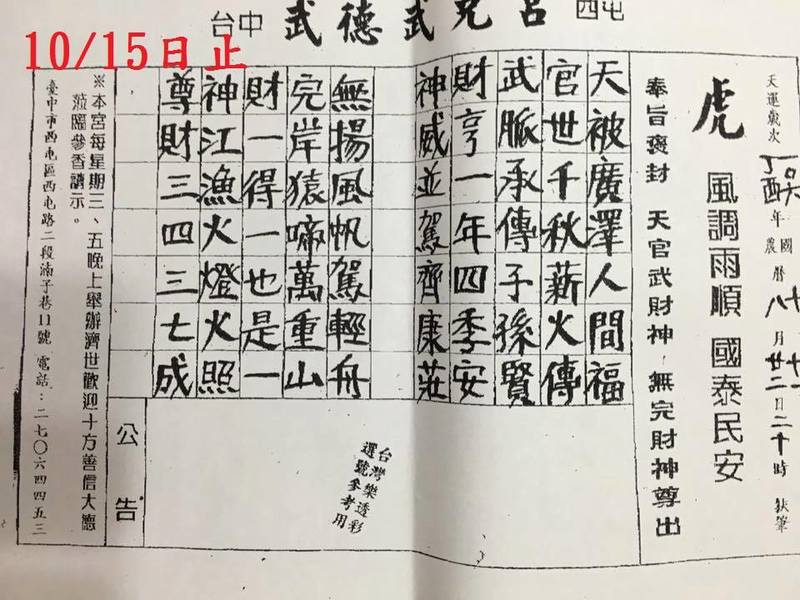 台中 武德武
10/15日止
天運歲次丁酉年國農曆
虎
風調雨順 國泰民安
奉旨褒封 天官武財神 無完財神尊出
天被廣澤人間福
官世千秋薪火傳
武脈承傳子孫賢
財亨一年四季安
神威並駕齊康莊
無揚風帆駕輕舟
完岸猿啼萬重山
財一得一也是一
神江漁火燈火照
尊財三四三七成
台灣樂透彩
選號參考用
公告
※本宮每星期三、五晚上舉辦濟世歡迎十方善信大德
蒞臨參香請示。
臺中市西屯區西屯路二段湳子巷11號 電話：二七〇六四四五三